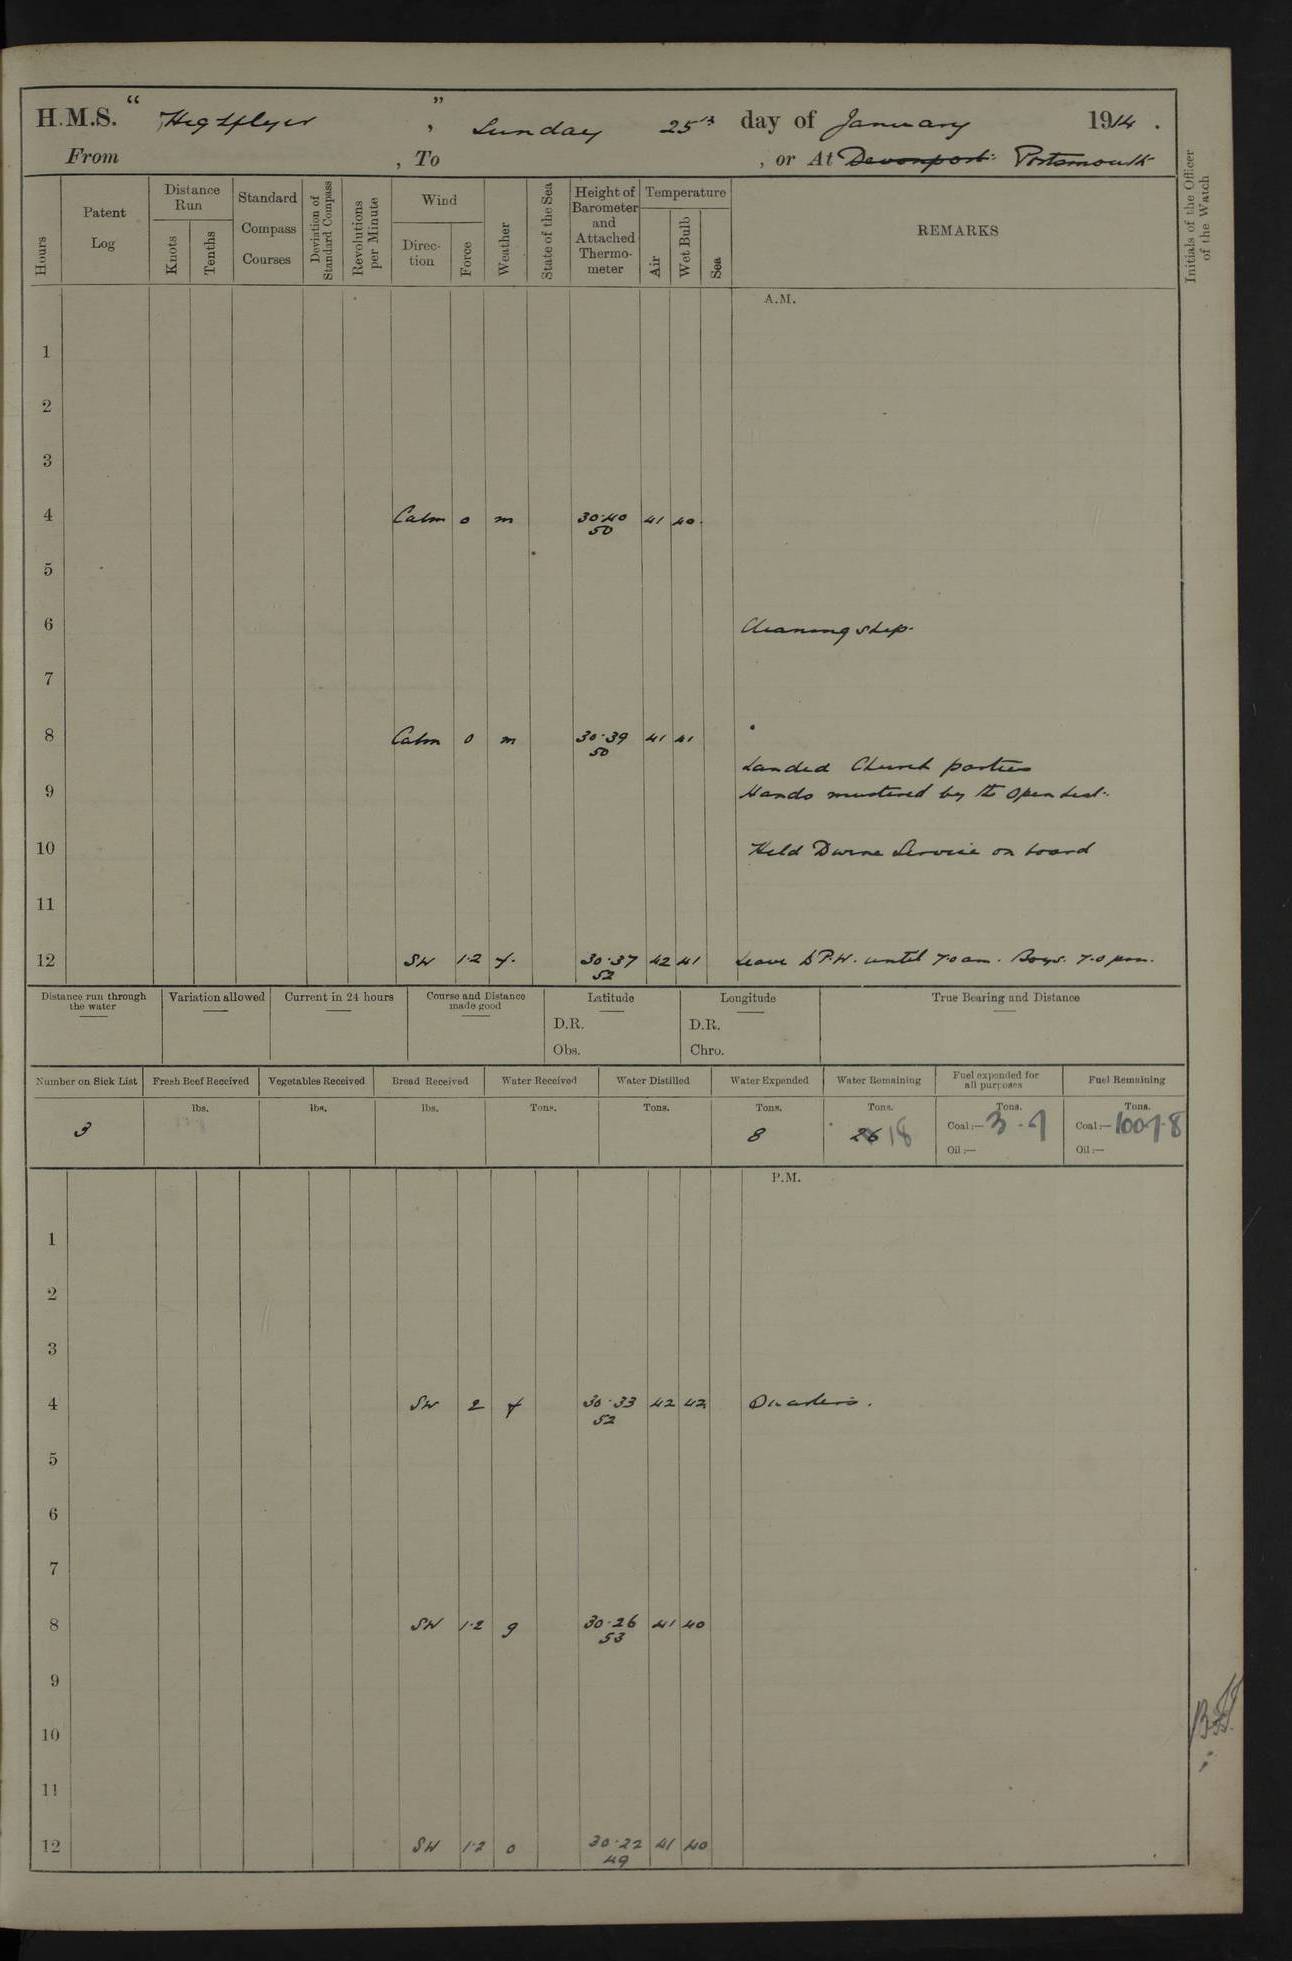 H.M.S. " Highflyer ", Sunday 25th day of January 1914.
From , To , or At Devonport Portsmouth
Hours
Patent Log
Distance Run
Knots
Tenths
Standard Compass Courses
Deviation of Standard Compass
Revolutions per Minute
Wind
Direction
Force
Weather
State of the Sea
Height of Barometer and Attached Thermometer
Temperature
Air
Wet Bulb
Sea
REMARKS
Initials of the Officer of the Watch
A.M.
1
2
3
4 Calm 0 m 30.40 41 40
50
5
6 Cleaning ship.
7
8 Calm 0 m 30.39 41 41
50
Landed Church parties
9 Hands mustered by the Open List.
10 Held Divine Service on board
11
12 SW 1.2 f. 30.37 42 41 Leave to P.W. until 7.0 am. Boys. 7.0 pm.
52
Distance run through the water
Variation allowed
Current in 24 hours
Course and Distance made good
Latitude
D.R.
Obs.
Longitude
D.R.
Chro.
True Bearing and Distance
Number on Sick List Fresh Beef Received Vegetables Received Bread Received Water Received Water Distilled Water Expended Water Remaining Fuel expended for all purposes Fuel Remaining
lbs. lbs. lbs. Tons. Tons. Tons. Tons. Tons. Tons.
3 8 26 18 Coal:— 3.7 Coal:— 1007.8
Oil:— Oil:—
P.M.
1
2
3
4 SW 2 f 30.33 42 42 Quarters.
52
5
6
7
8 SW 1.2 g 30.26 41 40
53
9
10
11
12 SW 1.2 0 30.22 41 40
49